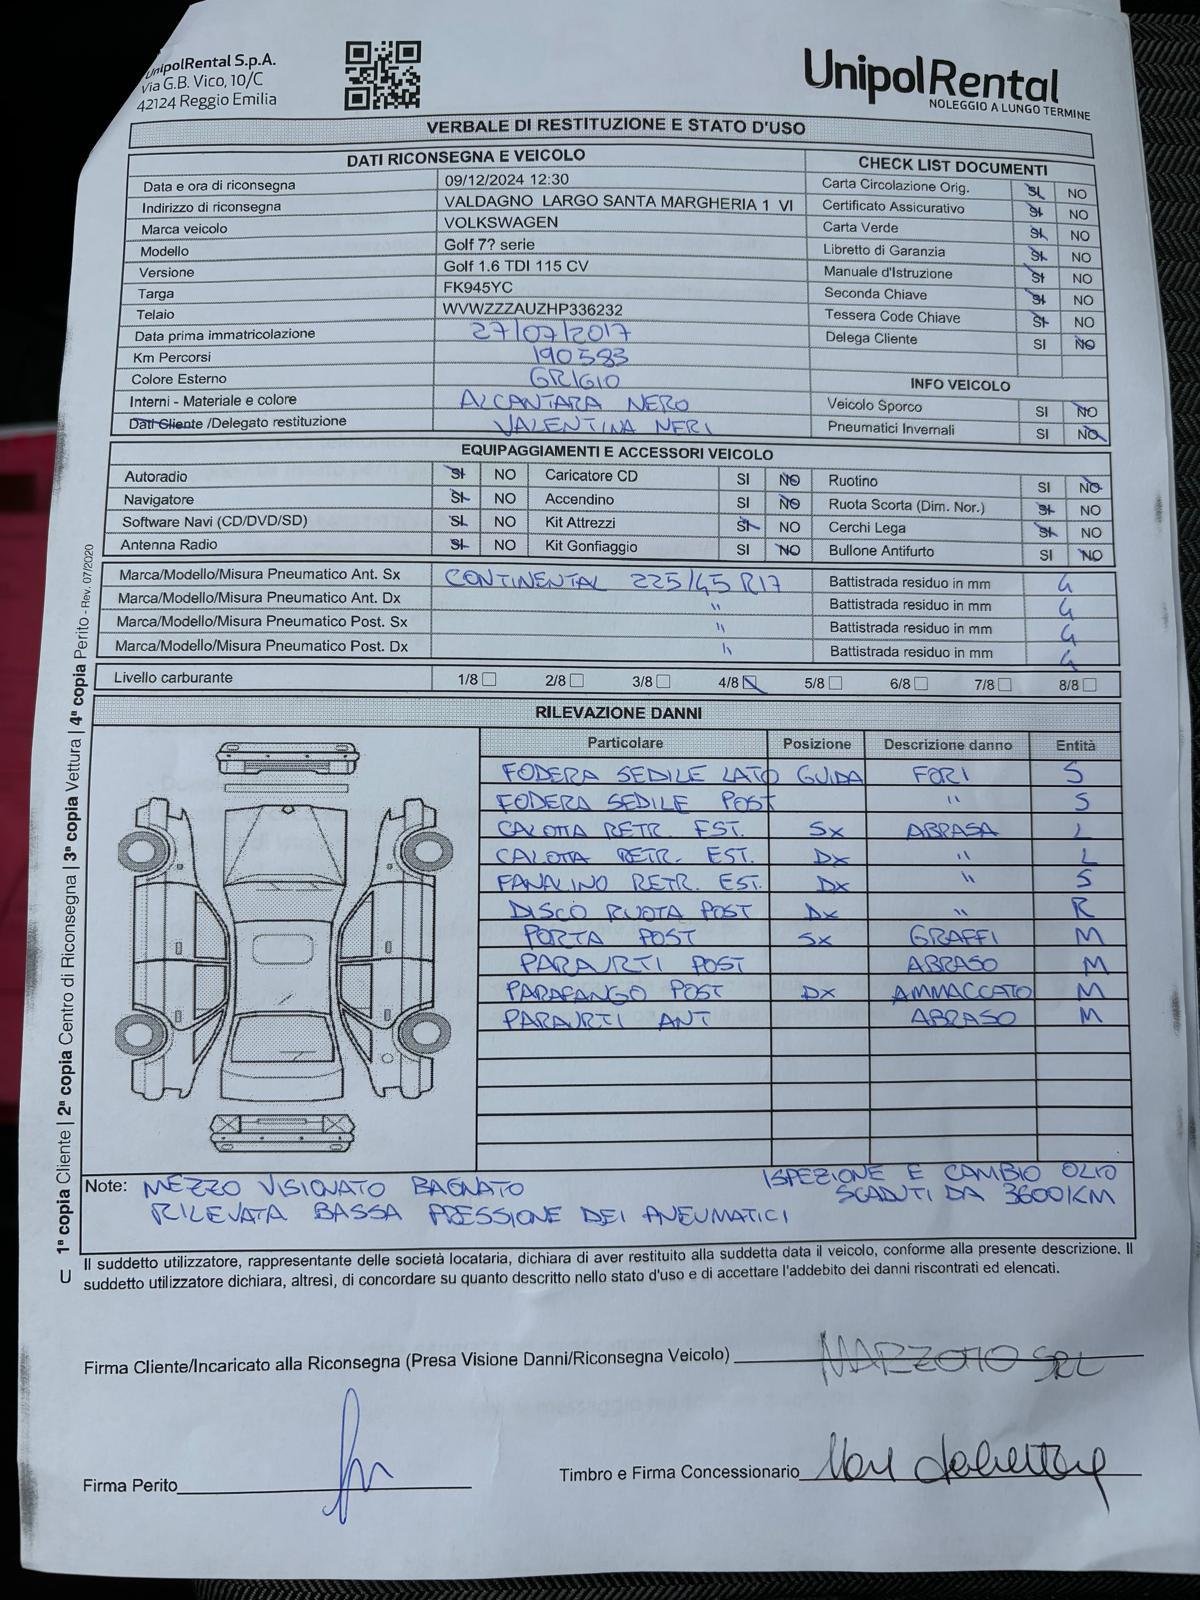 UnipolRental S.p.A.
Via G.B. Vico, 10/C
42124 Reggio Emilia
UnipolRental
NOLEGGIO A LUNGO TERMINE
VERBALE DI RESTITUZIONE E STATO D'USO
DATI RICONSEGNA E VEICOLO
CHECK LIST DOCUMENTI
Data e ora di riconsegna 09/12/2024 12:30 Carta Circolazione Orig. SI NO
Indirizzo di riconsegna VALDAGNO LARGO SANTA MARGHERIA 1 VI Certificato Assicurativo SI NO
Marca veicolo VOLKSWAGEN Carta Verde SI NO
Modello Golf 7? serie Libretto di Garanzia SI NO
Versione Golf 1.6 TDI 115 CV Manuale d'Istruzione SI NO
Targa FK945YC Seconda Chiave SI NO
Telaio WVWZZZAUZHP336232 Tessera Code Chiave SI NO
Data prima immatricolazione 27/07/2017 Delega Cliente SI NO
Km Percorsi 190583
Colore Esterno GRIGIO INFO VEICOLO
Interni - Materiale e colore ALCANTARA NERO Veicolo Sporco SI NO
Dati Cliente /Delegato restituzione VALENTINA NERI Pneumatici Invernali SI NO
EQUIPAGGIAMENTI E ACCESSORI VEICOLO
Autoradio SI NO Caricatore CD SI NO Ruotino SI NO
Navigatore SI NO Accendino SI NO Ruota Scorta (Dim. Nor.) SI NO
Software Navi (CD/DVD/SD) SI NO Kit Attrezzi SI NO Cerchi Lega SI NO
Antenna Radio SI NO Kit Gonfiaggio SI NO Bullone Antifurto SI NO
Marca/Modello/Misura Pneumatico Ant. Sx CONTINENTAL 225/45 R17 Battistrada residuo in mm 4
Marca/Modello/Misura Pneumatico Ant. Dx " Battistrada residuo in mm 4
Marca/Modello/Misura Pneumatico Post. Sx " Battistrada residuo in mm 4
Marca/Modello/Misura Pneumatico Post. Dx " Battistrada residuo in mm 4
Livello carburante 1/8 2/8 3/8 4/8 5/8 6/8 7/8 8/8
RILEVAZIONE DANNI
Particolare Posizione Descrizione danno Entità
FODERA SEDILE LATO GUIDA FORI S
FODERA SEDILE POST " S
CALOTTA RETR. EST. SX ABRASA L
CALOTA RETR. EST. DX " L
FANALINO RETR. EST. DX " S
DISCO RUOTA POST DX " R
PORTA POST SX GRAFFI M
PARAURTI POST ABRASO M
PARAFANGO POST DX AMMACCATO M
PARAURTI ANT ABRASO M
Note: MEZZO VISIONATO BAGNATO
RILEVATA BASSA PRESSIONE DEI PNEUMATICI
ISPEZIONE E CAMBIO OLIO
SCADUTI DA 3600KM
Il suddetto utilizzatore, rappresentante delle società locataria, dichiara di aver restituito alla suddetta data il veicolo, conforme alla presente descrizione. Il
suddetto utilizzatore dichiara, altresì, di concordare su quanto descritto nello stato d'uso e di accettare l'addebito dei danni riscontrati ed elencati.
Firma Cliente/Incaricato alla Riconsegna (Presa Visione Danni/Riconsegna Veicolo) MARZOTTO SRL
Firma Perito
Timbro e Firma Concessionario
U 1ª copia Cliente | 2ª copia Centro di Riconsegna | 3ª copia Vettura | 4ª copia Perito - Rev. 07/2020